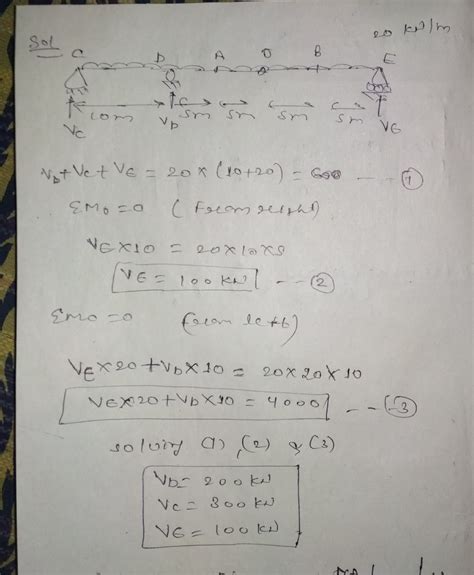 Sol
20 kN/m
C D A O B E
10m 5m 5m 5m 5m
Vc VD VE
VD + Vc + VE = 20 x (10+20) = 600 --- ①
ΣMo = 0 (From right)
VE x 10 = 20x10x5
VE = 100 kN -- ②
ΣMo = 0 (from left)
VE x 20 + VD x 10 = 20 x 20 x 10
VE x 20 + VD x 10 = 4000 -- ③
solving (1), (2) & (3)
VD = 200 kN
Vc = 300 kN
VE = 100 kN